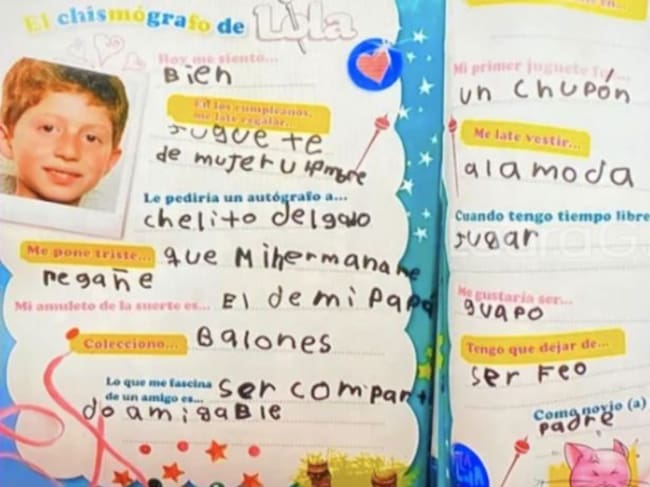 El chismógrafo de Lola
Hoy me siento...
Bien
En los cumpleaños,
me late regalar...
Jugue te
de mujer u Hombre
Le pediría un autógrafo a...
chelito delgado
Me pone triste... que Mi hermana me
regañe
Mi amuleto de la suerte es... El de mi Papá
Colecciono... Balones
Lo que me fascina
de un amigo es... ser compar
do amigaBle
Mi primer juguete fue...
un chupón
Me late vestir...
a la moda
Cuando tengo tiempo libre
Jugar
Me gustaría ser...
guapo
Tengo que dejar de...
ser Feo
Como novio (a)
padre